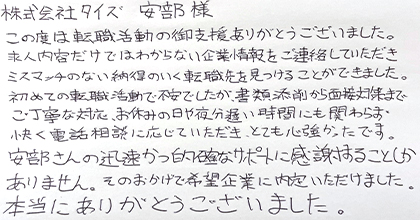 株式会社タイズ 安部様
この度は転職活動の御支援ありがとうございました。
求人内容だけではわからない企業情報をご連絡していただき
ミスマッチのない納得のいく転職先を見つけることができました。
初めての転職活動で不安でしたが、書類添削から面接対策まで
ご丁寧な対応、お休みの日や夜分遅い時間にも関わらず
快く電話相談に応じていただき、とても心強かったです。
安部さんの迅速かつ的確なサポートに感謝することしか
ありません。そのおかげで希望企業に内定いただけました。
本当にありがとうございました。